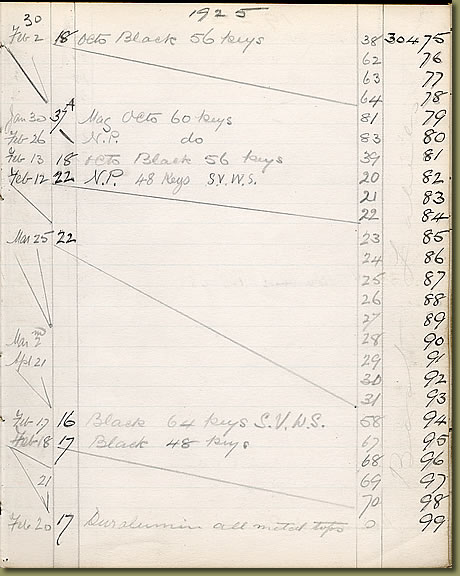 30 1925
Feb 2 18 Octo Black 56 keys 38 30475
62 76
63 77
64 78
Jan 30 37A Mag Octo 60 keys 81 79
Feb 26 N.P. do 83 80
Feb 13 18 Octo Black 56 keys 39 81
Feb 12 22 N.P. 48 Keys S.V.W.S. 20 82
21 83
22 84
Mar 25 22 23 85
24 86
25 87
26 88
27 89
Mar 28 90
Apl 21 29 91
30 92
31 93
Feb 17 16 Black 64 keys S.V.W.S. 58 94
Feb 18 17 Black 48 keys 67 95
68 96
21 69 97
70 98
Feb 20 17 Duralumin all metal tops 0 99